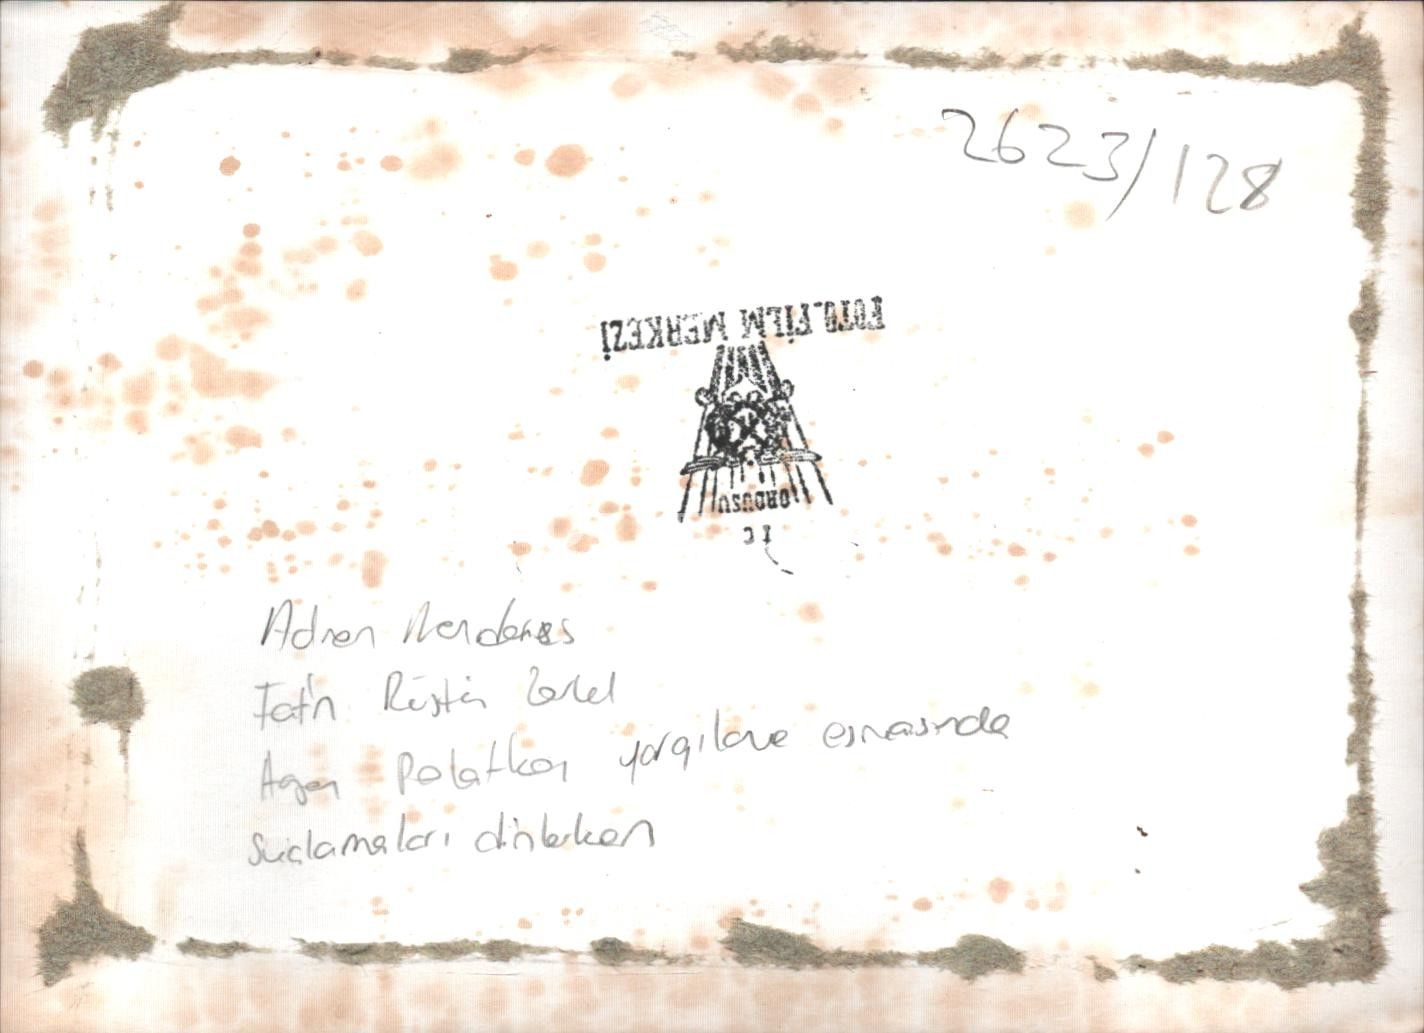 2623/128
FOTO-FİLM MERKEZİ
ORDUSU
Adnan Menderes
Fatin Rüştü Zorlu
Hasan Polatkan yargılama esnasında
suçlamaları dinlerken